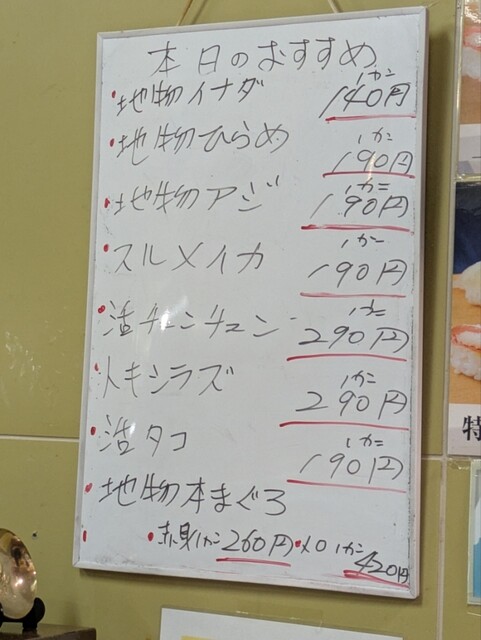 本日のおすすめ
・地物イナダ 1カン 140円
・地物ひらめ 1カン 190円
・地物アジ 1カン 190円
・スルメイカ 1カン 190円
・活チュンチュン 1カン 290円
・トキシラズ 1カン 290円
・活タコ 1カン 190円
・地物本まぐろ
・赤身1カン 260円・メロ1カン 420円
特